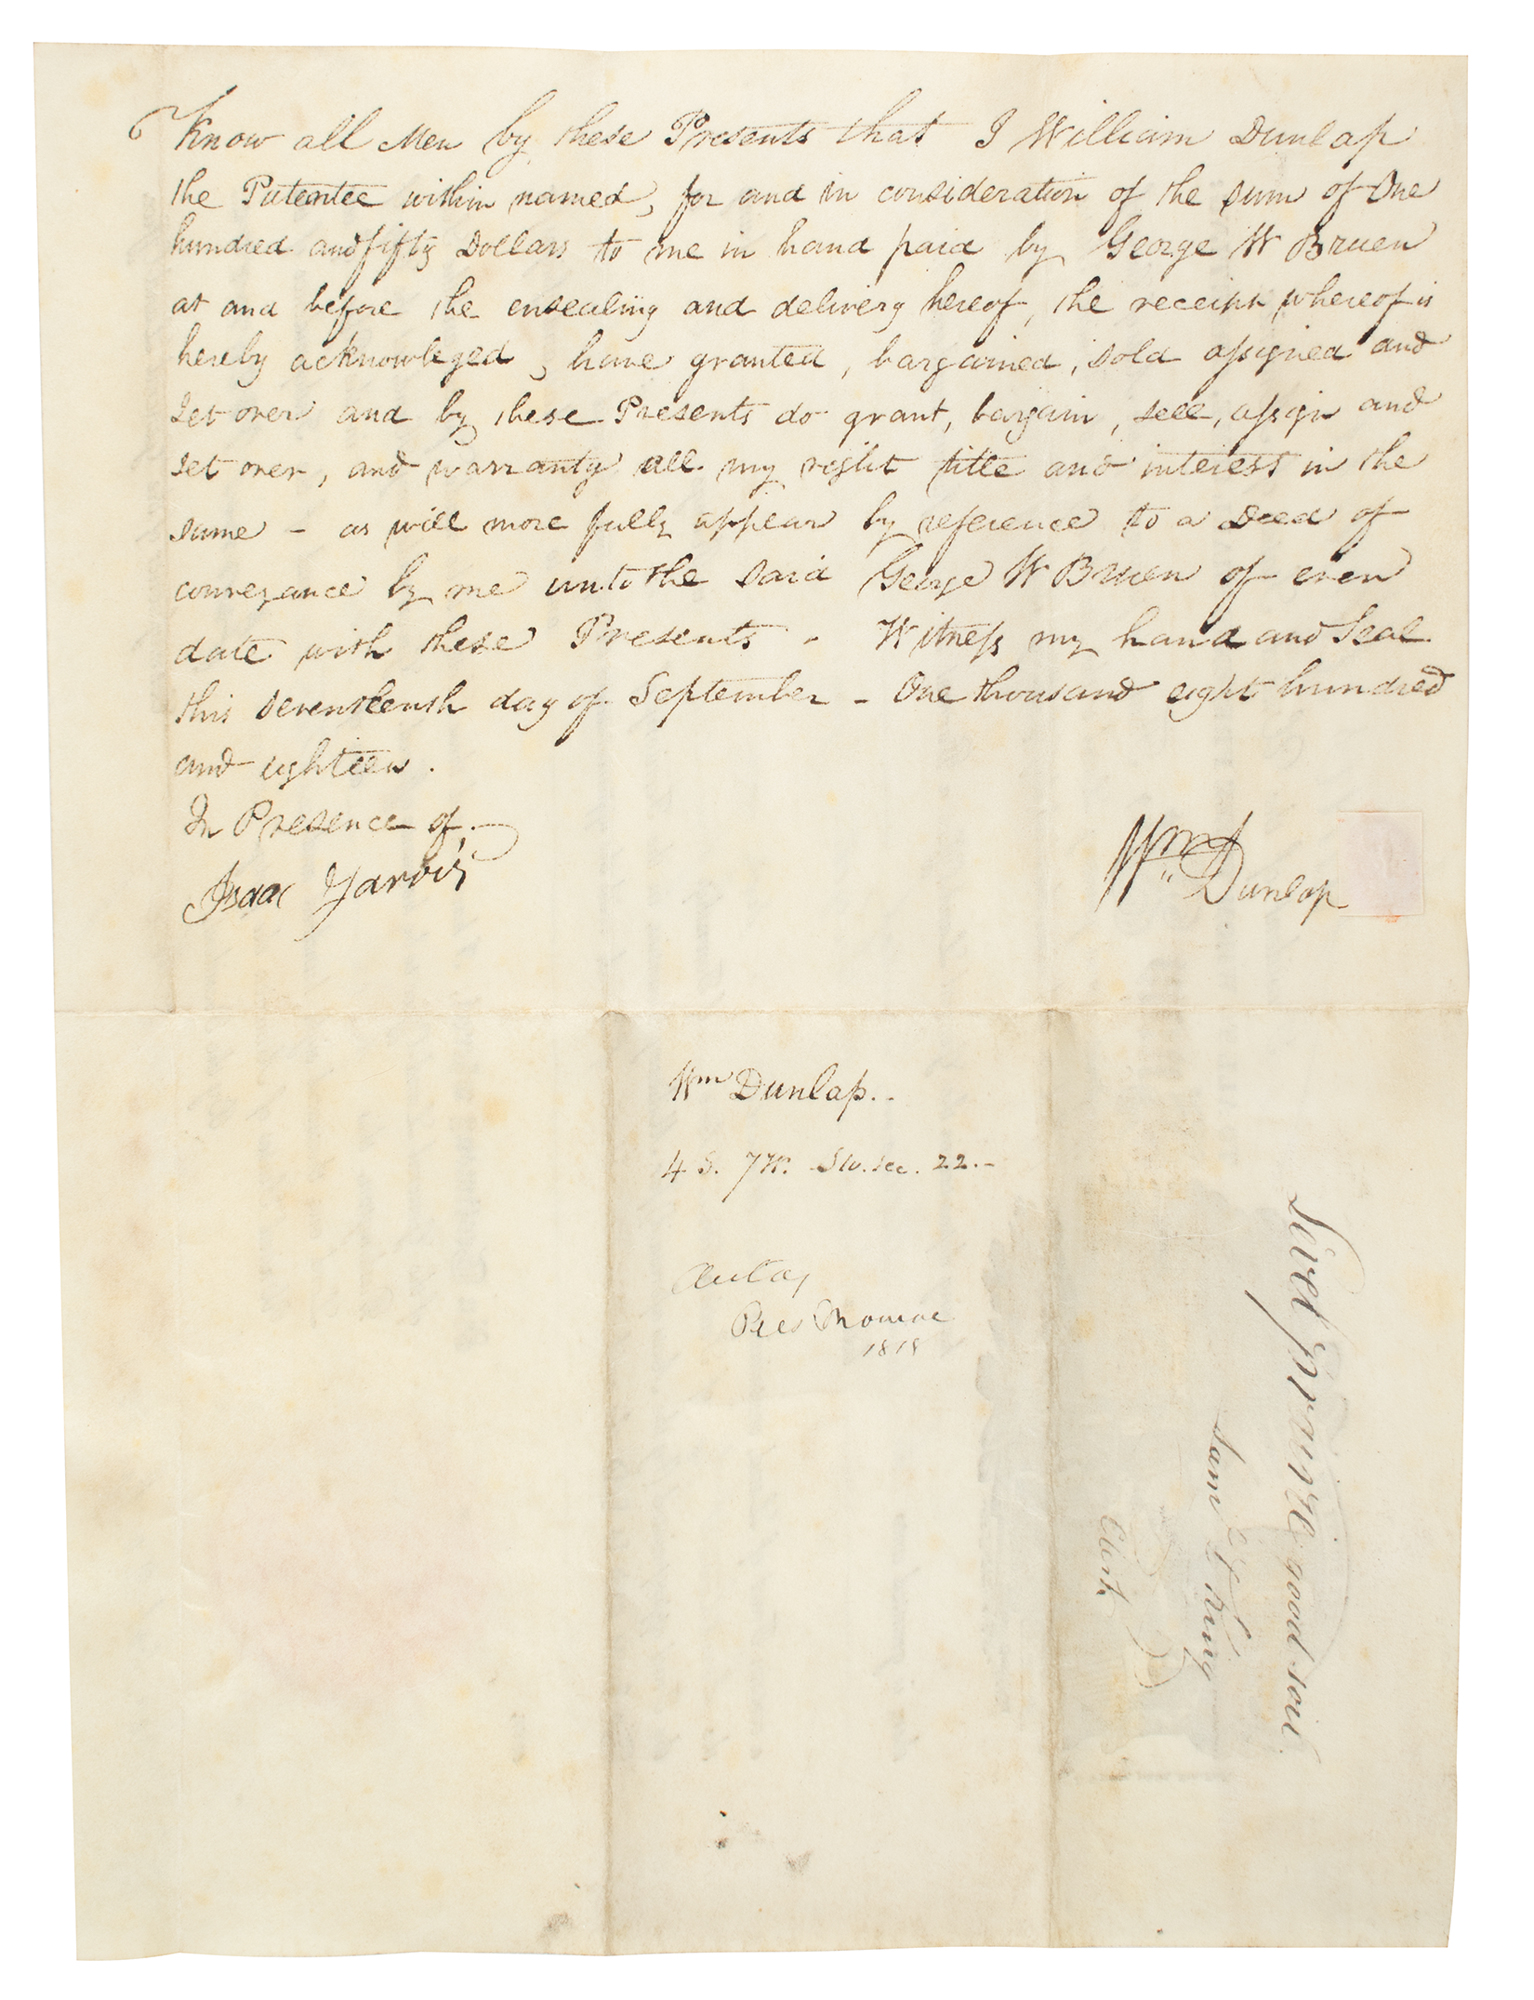 Know all Men by these Presents that I William Dunlap
the Patentee within named, for and in consideration of the sum of One
hundred and fifty Dollars to me in hand paid by George W Bruen
at and before the ensealing and delivery hereof, the receipt whereof is
hereby acknowleged, have granted, bargained, sold assigned and
set over and by these Presents do grant, bargain, sell, assign and
set over, and warranty all my right title and interest in the
same - as will more fully appear by reference to a Deed of
conveyance by me unto the said George W Bruen of even
date with these Presents - Witness my hand and Seal
this seventeenth day of September - One thousand eight hundred
and eighteen.
In Presence of,
Isaac Jarvis
Wm Dunlap
Wm Dunlap..
4 S. 7 W. SW. sec. 22.-
Pres Monroe
1818
prairie good soil
Saml King
Clerk